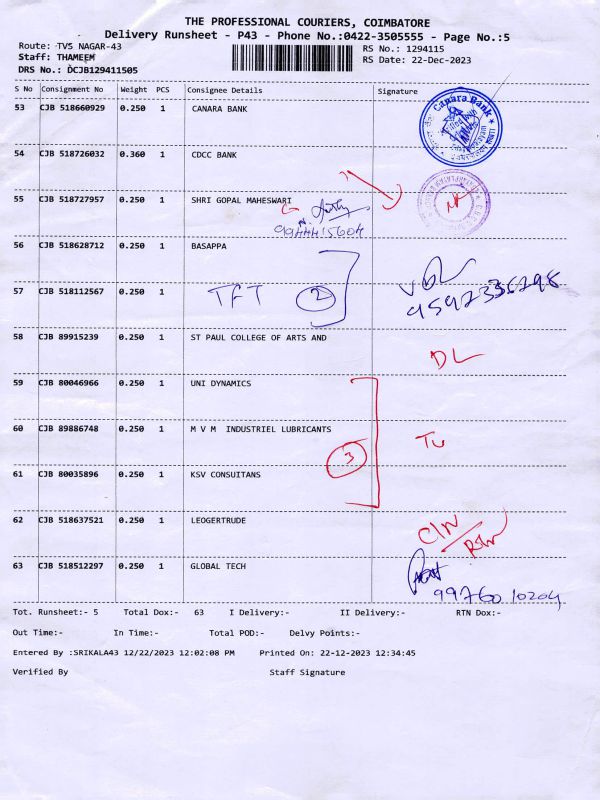 THE PROFESSIONAL COURIERS, COIMBATORE
Delivery Runsheet - P43 - Phone No.:0422-3505555 - Page No.:5
Route: TVS NAGAR-43 RS No.: 1294115
Staff: THAMEEM RS Date: 22-Dec-2023
DRS No.: DCJB129411505
S No Consignment No Weight PCS Consignee Details Signature
53 CJB 518660929 0.250 1 CANARA BANK
Canara Bank
54 CJB 518726032 0.360 1 CDCC BANK
55 CJB 518727957 0.250 1 SHRI GOPAL MAHESWARI
9944415604
56 CJB 518628712 0.250 1 BASAPPA
57 CJB 518112567 0.250 1 TFT 2
9597336298
58 CJB 89915239 0.250 1 ST PAUL COLLEGE OF ARTS AND
DL
59 CJB 80046966 0.250 1 UNI DYNAMICS
60 CJB 89886748 0.250 1 M V M INDUSTRIEL LUBRICANTS
3
61 CJB 80035896 0.250 1 KSV CONSUITANS
62 CJB 518637521 0.250 1 LEOGERTRUDE
63 CJB 518512297 0.250 1 GLOBAL TECH
99760 10204
Tot. Runsheet:- 5 Total Dox:- 63 I Delivery:- II Delivery:- RTN Dox:-
Out Time:- In Time:- Total POD:- Delvy Points:-
Entered By :SRIKALA43 12/22/2023 12:02:08 PM Printed On: 22-12-2023 12:34:45
Verified By Staff Signature